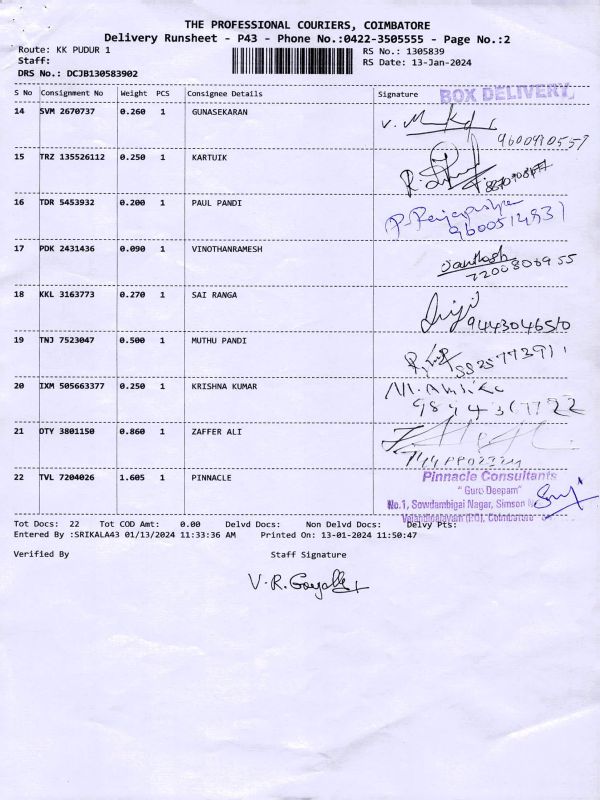 THE PROFESSIONAL COURIERS, COIMBATORE
Delivery Runsheet - P43 - Phone No.:0422-3505555 - Page No.:2
Route: KK PUDUR 1 RS No.: 1305839
Staff: RS Date: 13-Jan-2024
DRS No.: DCJB130583902
S No Consignment No Weight PCS Consignee Details Signature BOX DELIVERY
14 SVM 2670737 0.260 1 GUNASEKARAN
9600910557
15 TRZ 135526112 0.250 1 KARTUIK
16 TDR 5453932 0.200 1 PAUL PANDI
9600514931
17 PDK 2431436 0.090 1 VINOTHANRAMESH Santhosh
7200806955
18 KKL 3163773 0.270 1 SAI RANGA
9443046510
19 TNJ 7523047 0.500 1 MUTHU PANDI
20 IXM 505663377 0.250 1 KRISHNA KUMAR
21 DTY 3801150 0.860 1 ZAFFER ALI
22 TVL 7204026 1.605 1 PINNACLE Pinnacle Consultants
" Guru Deepam"
No.1, Sowdambigai Nagar, Simson
Velandipalayam (PO), Coimbatore
Tot Docs: 22 Tot COD Amt: 0.00 Delvd Docs: Non Delvd Docs: Delvy Pts:
Entered By :SRIKALA43 01/13/2024 11:33:36 AM Printed On: 13-01-2024 11:50:47
Verified By Staff Signature